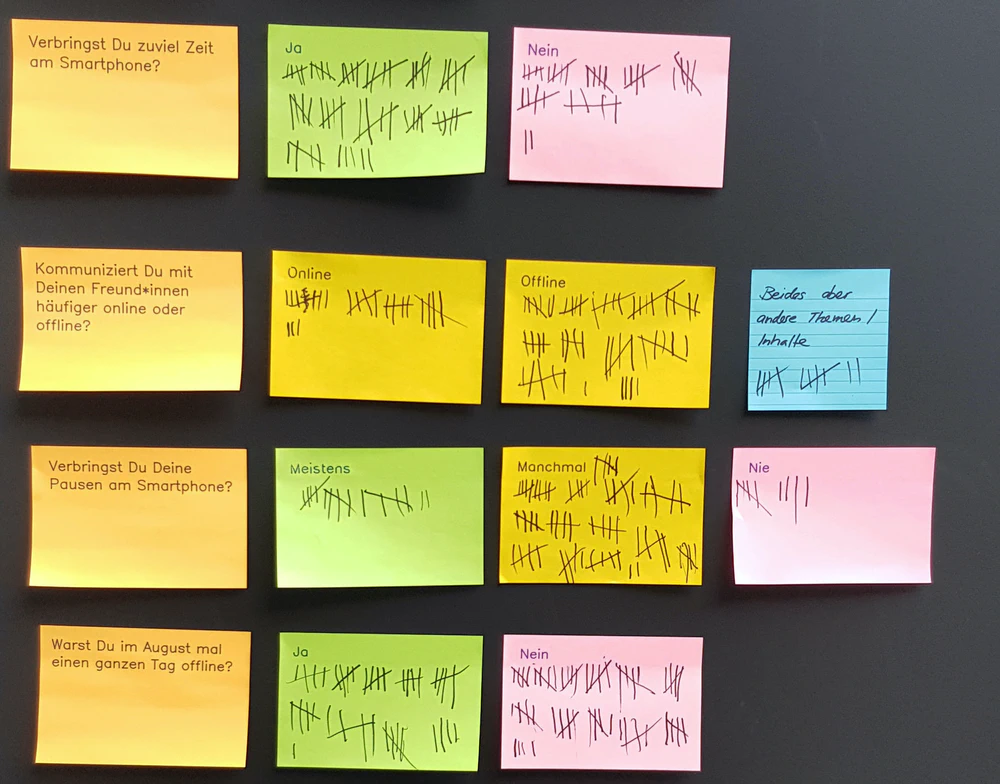 Verbringst Du zuviel Zeit
am Smartphone?
Ja
Nein
Kommuniziert Du mit
Deinen Freund*innen
häufiger online oder
offline?
Online
Offline
Beides aber
andere Themen /
Inhalte
Verbringst Du Deine
Pausen am Smartphone?
Meistens
Manchmal
Nie
Warst Du im August mal
einen ganzen Tag offline?
Ja
Nein